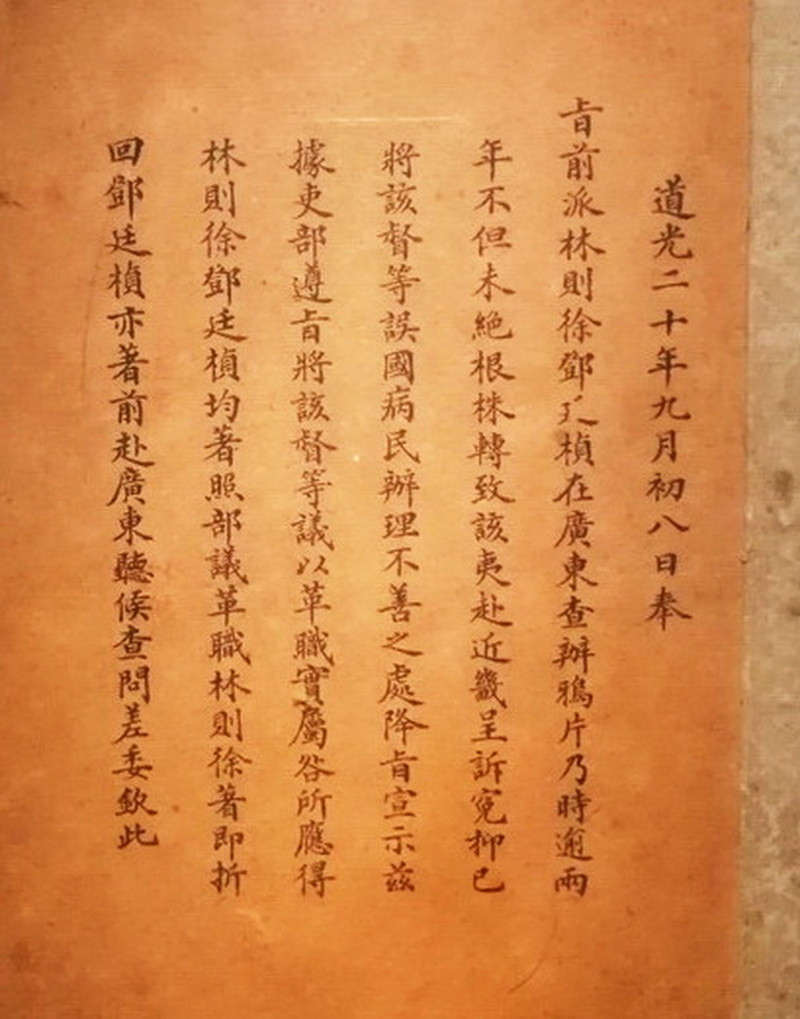 道光二十年九月初八日奉
旨前派林則徐鄧廷楨在廣東查辦鴉片乃時逾兩
年不但未絕根株轉致該夷赴近畿呈訴冤抑已
將該督等誤國病民辦理不善之處降旨宣示茲
據吏部遵旨將該督等議以革職實屬咎所應得
林則徐鄧廷楨均著照部議革職林則徐著即折
回鄧廷楨亦著前赴廣東聽候查問差委欽此